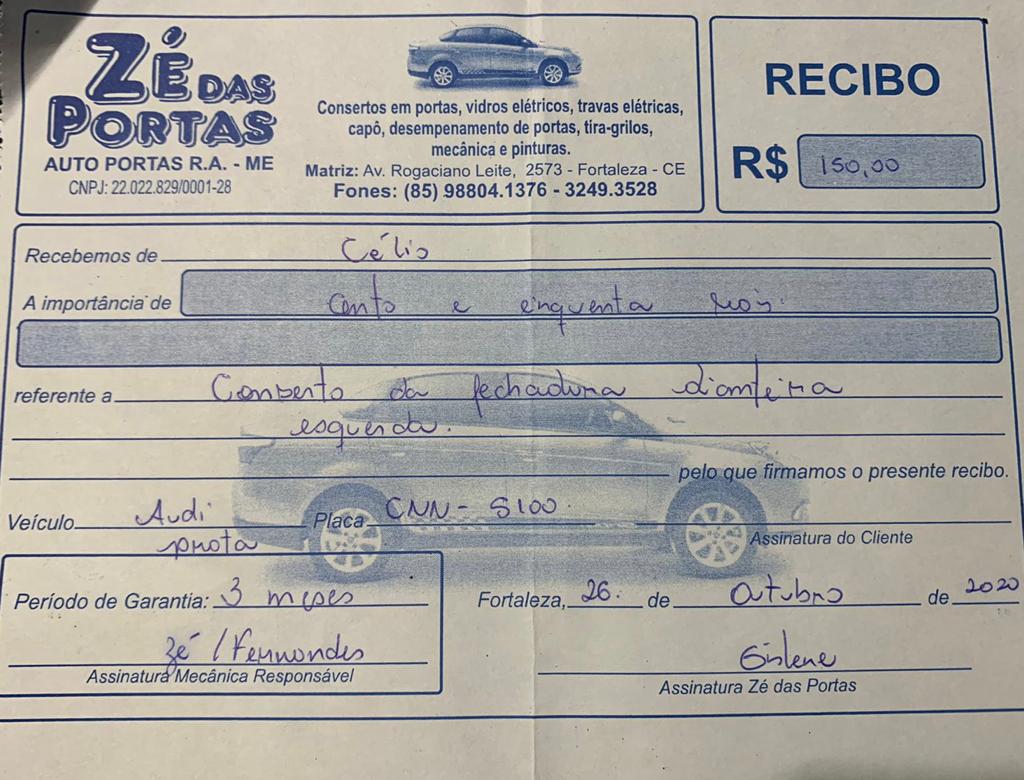 ZÉ DAS
PORTAS
AUTO PORTAS R.A. - ME
CNPJ: 22.022.829/0001-28
Consertos em portas, vidros elétricos, travas elétricas,
capô, desempenamento de portas, tira-grilos,
mecânica e pinturas.
Matriz: Av. Rogaciano Leite, 2573 - Fortaleza - CE
Fones: (85) 98804.1376 - 3249.3528
RECIBO
R$ 150,00
Recebemos de Célio
A importância de Cento e cinquenta reais
referente a Conserto da fechadura dianteira
esquerda.
pelo que firmamos o presente recibo.
Veículo Audi Placa CNN - 5100
prata
Assinatura do Cliente
Período de Garantia: 3 meses
Fortaleza, 26. de Outubro de 2020
Zé / Fernandes
Assinatura Mecânica Responsável
Gislene
Assinatura Zé das Portas